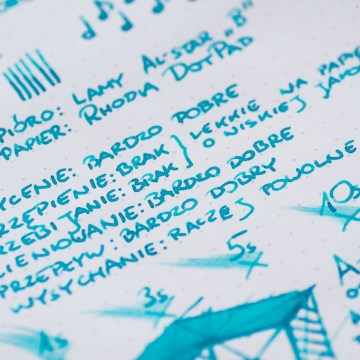 PIÓRO: LAMY AL-STAR "B"
PAPIER: RHODIA DOTPAD
YCENIE: BARDZO DOBRE
RZEPIENIE: BRAK } LEKKIE NA PAPIE
RZEBIJANIE: BRAK } O NISKIEJ JAKOŚ
CIENIOWANIE: BARDZO DOBRE
PRZEPŁYW: BARDZO DOBRY
WYSYCHANIE: RACZEJ POWOLNE
1s 3s 5s 10s